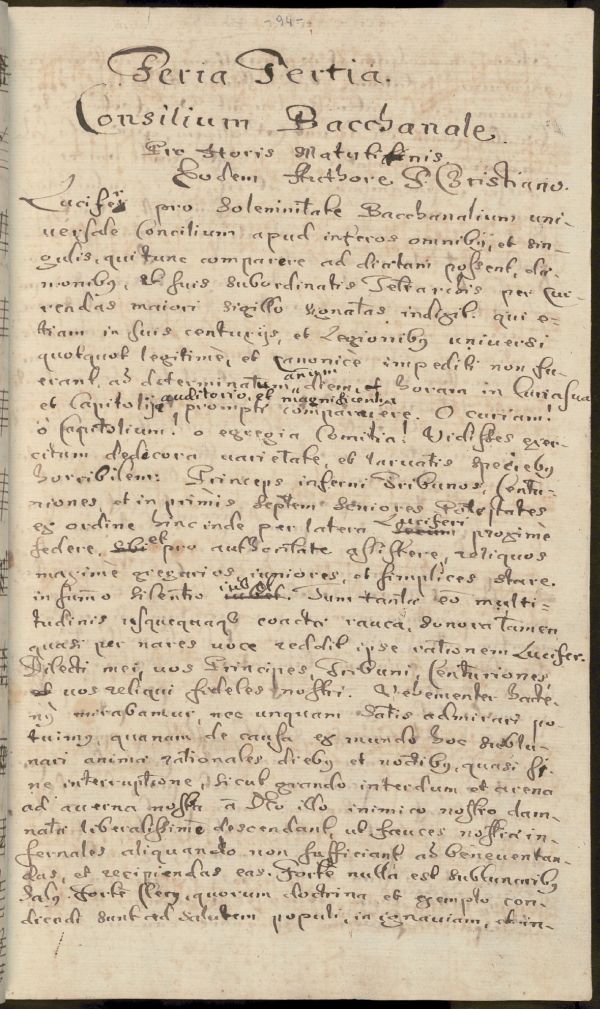 -94-
Feria Tertia.
Consilium Bacchanale.
Pro Horis Matutinis
Eodem Authore P. Cristiano.
Lucifer pro Solemnitate Bacchanalium uni-
versale Concilium apud inferos omnibq, et sin-
gulis, qui tunc comparere ad dictam possent, dæ-
monibq, et suis subordinatis Tetrarchis per cur-
rendas maiori sigillo donatas indixit. qui e-
tiam in suis centurijs, et Legionibq universi
quotquot legitimè, et canonicè impediti non fu-
erant, ad determinatum diem, et horam in Curia sua
anum
et Capitolij prompti comparuere. O curiam!
auditorio, et magnificentia
ô Capitolium! o egregia Comitia! Vidisses exer-
citum dedecora varietate, et larvatis speciebq
horribilem: Princeps inferni Tribunos, Centu-
riones, et in primis Septem Seniores Potestates
ex ordine hinc inde per latera Luciferi proximè
sedere, et pro authoritate assistere, reliquos
maximè gregarios, iuniores, et simplices stare.
in sum̃o silentio iubet. Dum tanta eo multi-
tudinis usquequaqq coacta rauca, sonora tamen
quasi per nares voce reddit ipse rationem Lucifer.
Dilecti mei, vos Principes Tribuni, Centuriones,
et vos reliqui fideles nostri. Vehementer hacte-
nq mirabamur, nec unquam satis admirari po-
tuimq, quanam de causa ex mundo hoc sublu-
nari animæ rationales diebq et noctibq, quasi si-
ne interruptione, sicut grando interdum et arena
ad averna nostra a Deo illo inimico nostro dam-
natæ liberalissimè descendant, ut fauces nostræ in-
fernales aliquando non sufficiant ad beneventan-
das, et recipiendas eas. Forte nulla est sublunaribq
salq, forte Clerq, quorum doctrina et exemplo con-
dicedi sunt ad salutem populi, in ignaviam, et in-